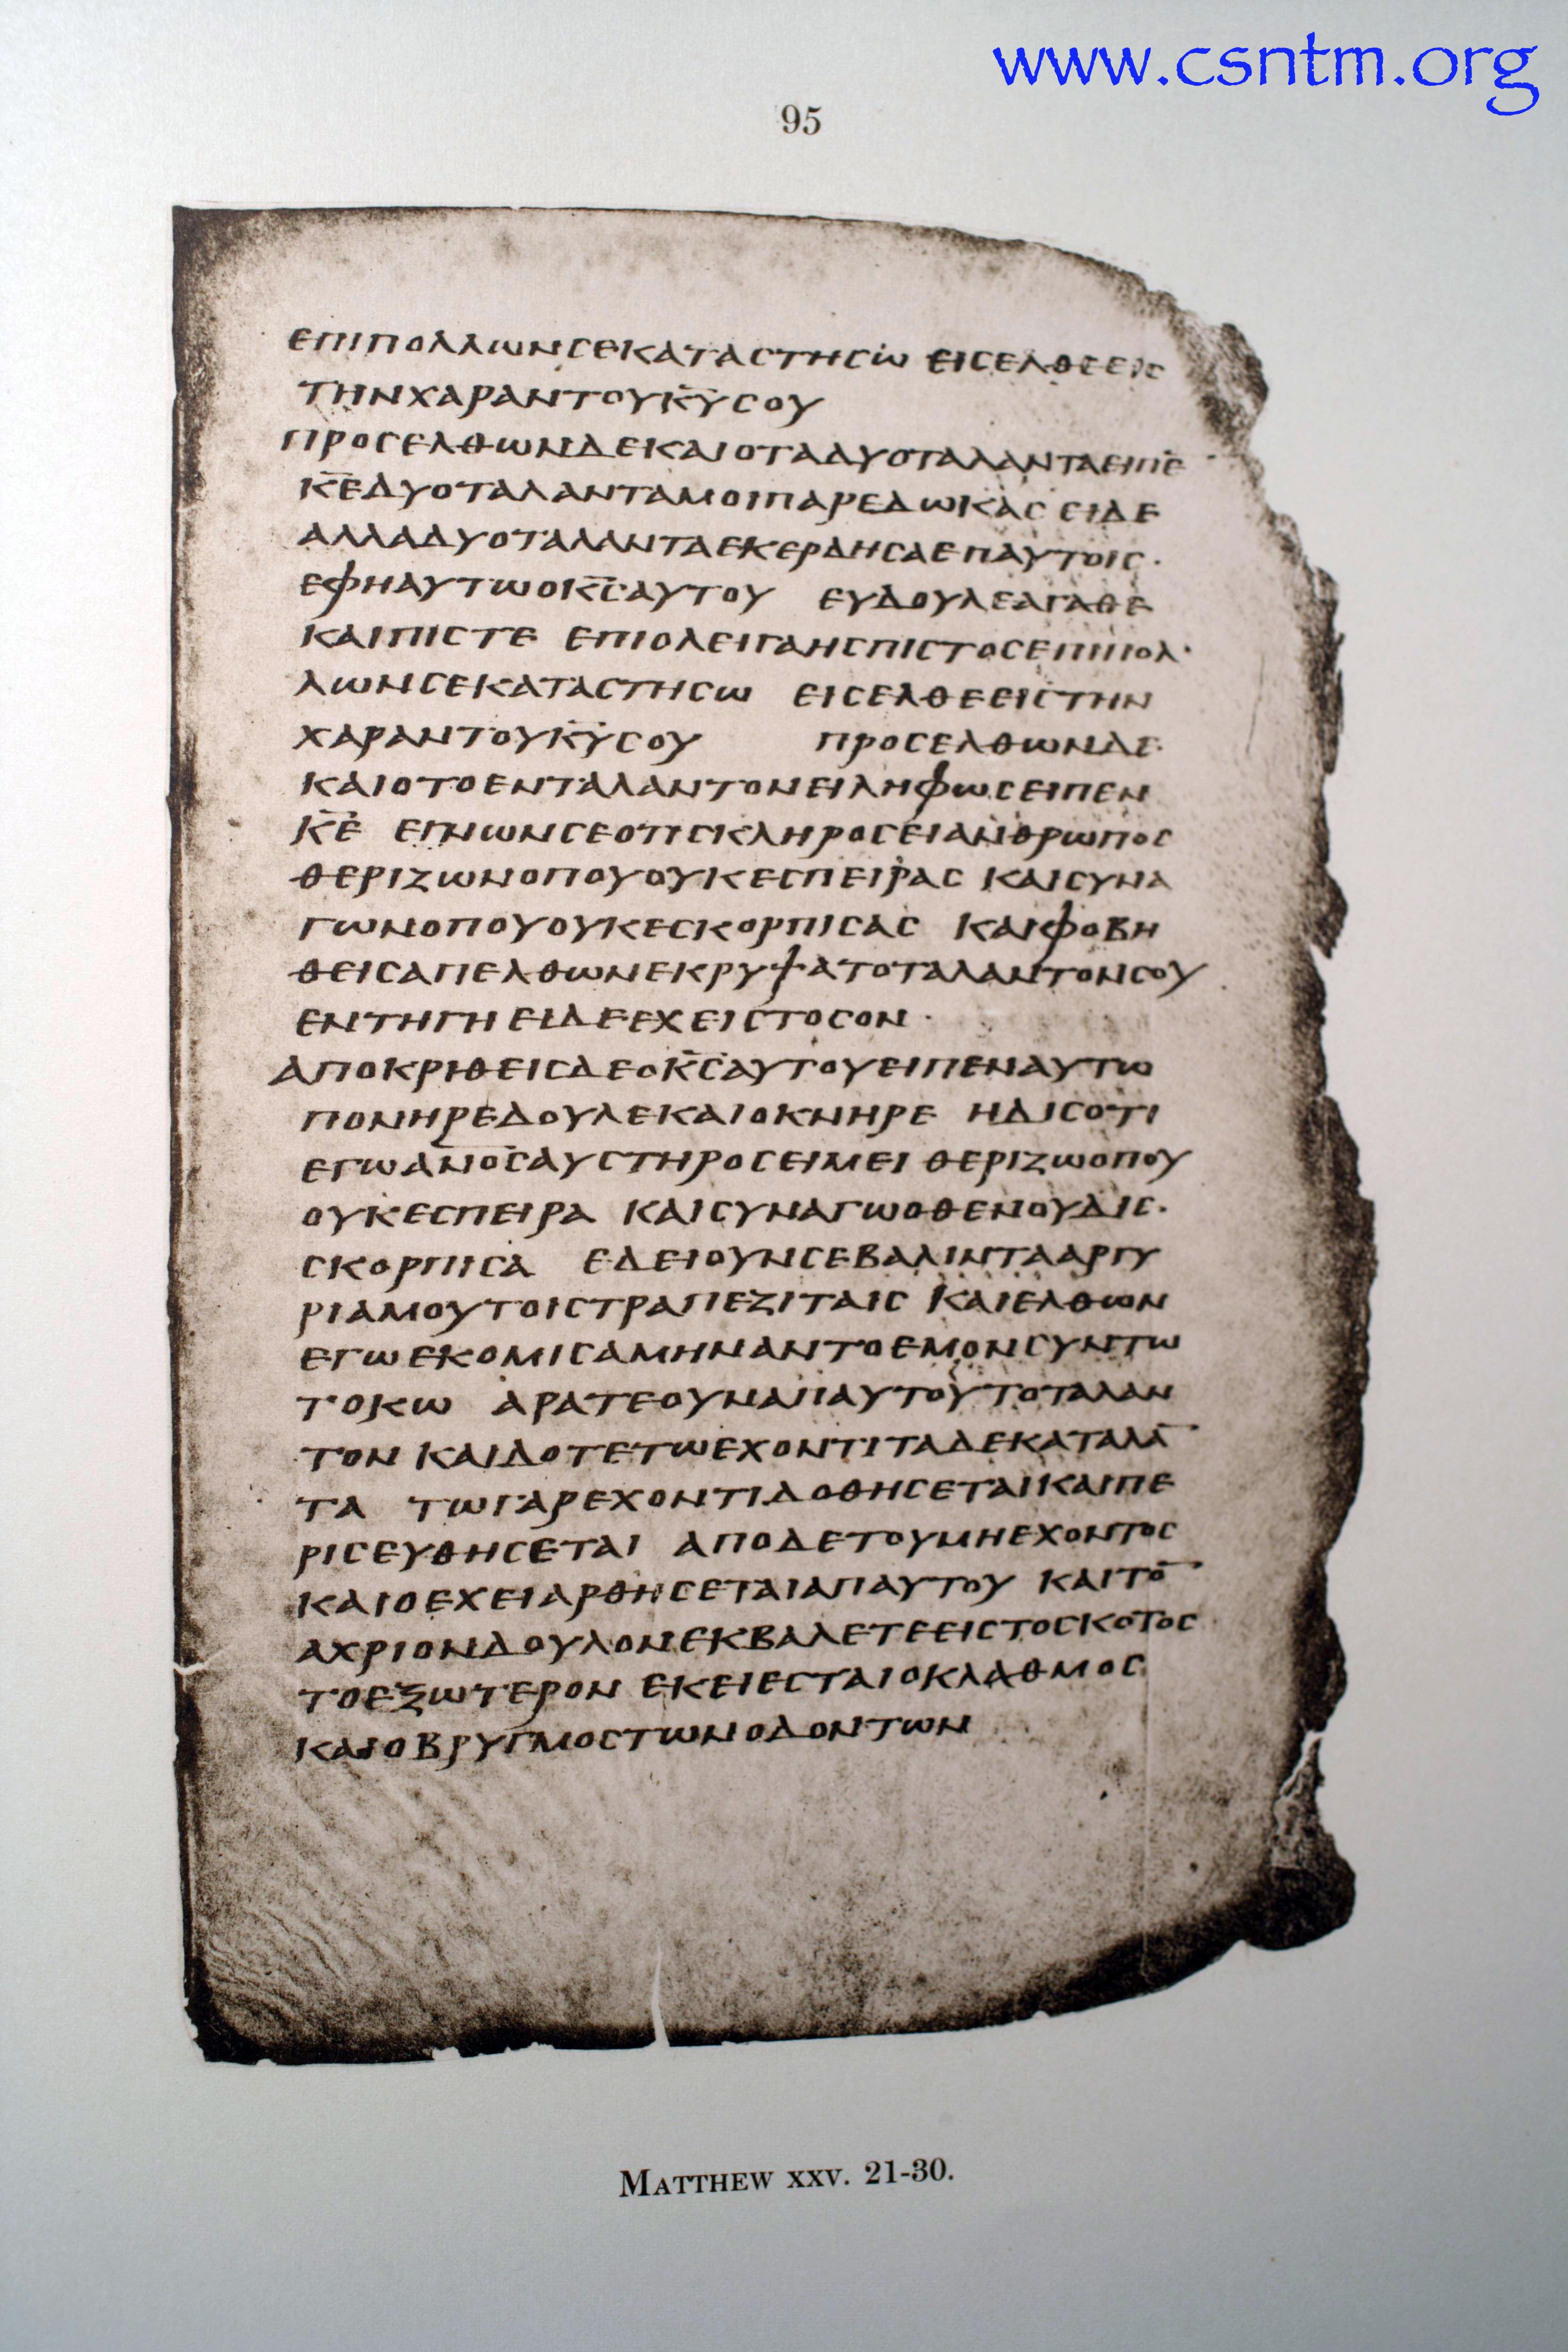 www.csntm.org
95
ΕΠΙΠΟΛΛΩΝCΕΚΑΤΑCΤΗCΩ ΕΙCΕΛΘΕΕΙC
ΤΗΝΧΑΡΑΝΤΟΥΚ̅Υ̅CΟΥ
ΠΡΟCΕΛΘΩΝΔΕΚΑΙΟΤΑΔΥΟΤΑΛΑΝΤΑΕΙΠΕ̅
Κ̅Ε̅ΔΥΟΤΑΛΑΝΤΑΜΟΙΠΑΡΕΔΩΚΑC ΕΙΔΕ
ΑΛΛΑΔΥΟΤΑΛΑΝΤΑΕΚΕΡΔΗCΑΕΠΑΥΤΟΙC·
ΕΦΗΑΥΤΩΟΚ̅C̅ΑΥΤΟΥ ΕΥΔΟΥΛΕΑΓΑΘΕ
ΚΑΙΠΙCΤΕ ΕΠΙΟΛΕΙΓΑΗCΠΙCΤΟCΕΠΙΠΟΛ·
ΛΩΝCΕΚΑΤΑCΤΗCΩ ΕΙCΕΛΘΕΕΙCΤΗΝ
ΧΑΡΑΝΤΟΥΚ̅Υ̅CΟΥ ΠΡΟCΕΛΘΩΝΔΕ·
ΚΑΙΟΤΟΕΝΤΑΛΑΝΤΟΝΕΙΛΗΦΩCΕΙΠΕΝ
Κ̅Ε̅ ΕΓΝΩΝCΕΟΤΙCΚΛΗΡΟCΕΙΑΝΘΡΩΠΟC
ΘΕΡΙΖΩΝΟΠΟΥΟΥΚΕCΠΕΙΡΑC ΚΑΙCΥΝΑ
ΓΩΝΟΠΟΥΟΥΚΕCΚΟΡΠΙCΑC ΚΑΙΦΟΒΗ
ΘΕΙCΑΠΕΛΘΩΝΕΚΡΥΨΑΤΟΤΑΛΑΝΤΟΝCΟΥ
ΕΝΤΗΓΗ ΕΙΔΕΕΧΕΙCΤΟCΟΝ·
ΑΠΟΚΡΙΘΕΙCΔΕΟΚ̅C̅ΑΥΤΟΥΕΙΠΕΝΑΥΤΩ
ΠΟΝΗΡΕΔΟΥΛΕΚΑΙΟΚΝΗΡΕ ΗΔΙCΟΤΙ
ΕΓΩΑ̅Ν̅Ο̅C̅ΑΥCΤΗΡΟCΕΙΜΕΙ ΘΕΡΙΖΩΟΠΟΥ
ΟΥΚΕCΠΕΙΡΑ ΚΑΙCΥΝΑΓΩΟΘΕΝΟΥΔΙC·
CΚΟΡΠΙCΑ ΕΔΕΙΟΥΝCΕΒΑΛΙΝΤΑΑΡΓΥ
ΡΙΑΜΟΥΤΟΙCΤΡΑΠΕΖΙΤΑΙC ΚΑΙΕΛΘΩΝ
ΕΓΩΕΚΟΜΙCΑΜΗΝΑΝΤΟΕΜΟΝCΥΝΤΩ
ΤΟΚΩ ΑΡΑΤΕΟΥΝΑΠΑΥΤΟΥΤΟΤΑΛΑΝ
ΤΟΝ ΚΑΙΔΟΤΕΤΩΕΧΟΝΤΙΤΑΔΕΚΑΤΑΛΑ̅
ΤΑ ΤΩΓΑΡΕΧΟΝΤΙΔΟΘΗCΕΤΑΙΚΑΙΠΕ
ΡΙCΕΥΘΗCΕΤΑΙ ΑΠΟΔΕΤΟΥΜΗΕΧΟΝΤΟC
ΚΑΙΟΕΧΕΙΑΡΘΗCΕΤΑΙΑΠΑΥΤΟΥ ΚΑΙΤΟ̅
ΑΧΡΙΟΝΔΟΥΛΟΝΕΚΒΑΛΕΤΕΕΙCΤΟCΚΟΤΟC
ΤΟΕΞΩΤΕΡΟΝ ΕΚΕΙΕCΤΑΙΟΚΛΑΘΜΟC
ΚΑΙΟΒΡΥΓΜΟCΤΩΝΟΔΟΝΤΩΝ
MATTHEW XXV. 21-30.